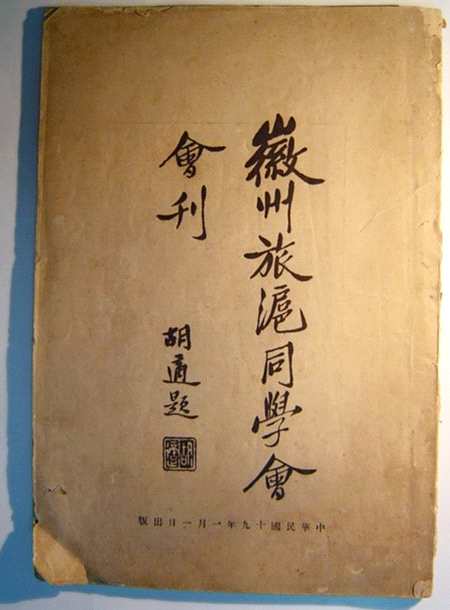 徽州旅滬同學會
會刊
胡適題
中華民國十九年一月一日出版